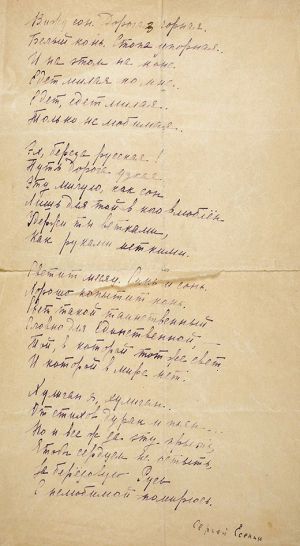 Вижу сон. Дорога черная.
Белый конь. Стопа упорная.
И на этом на коне
Едет милая ко мне.
Едет, едет милая.
Только не любимая.
Эх, береза русская!
Путь-дорога узкая.
Эту милую, как сон
Лишь для той в кого влюблен
Держи ты ветками,
Как руками меткими.
Светит месяц. Синь и сонь.
Хорошо копытит конь.
Свет такой таинственный
Словно для Единственной
Той, в которой тот же свет
И которой в мире нет.
Хулиган я, хулиган.
От стихов дурак и пьян.
Но и все ж за эту прыть,
Чтоб сердцем не остыть
За березовую Русь
С нелюбимой помирюсь.
Сергей Есенин